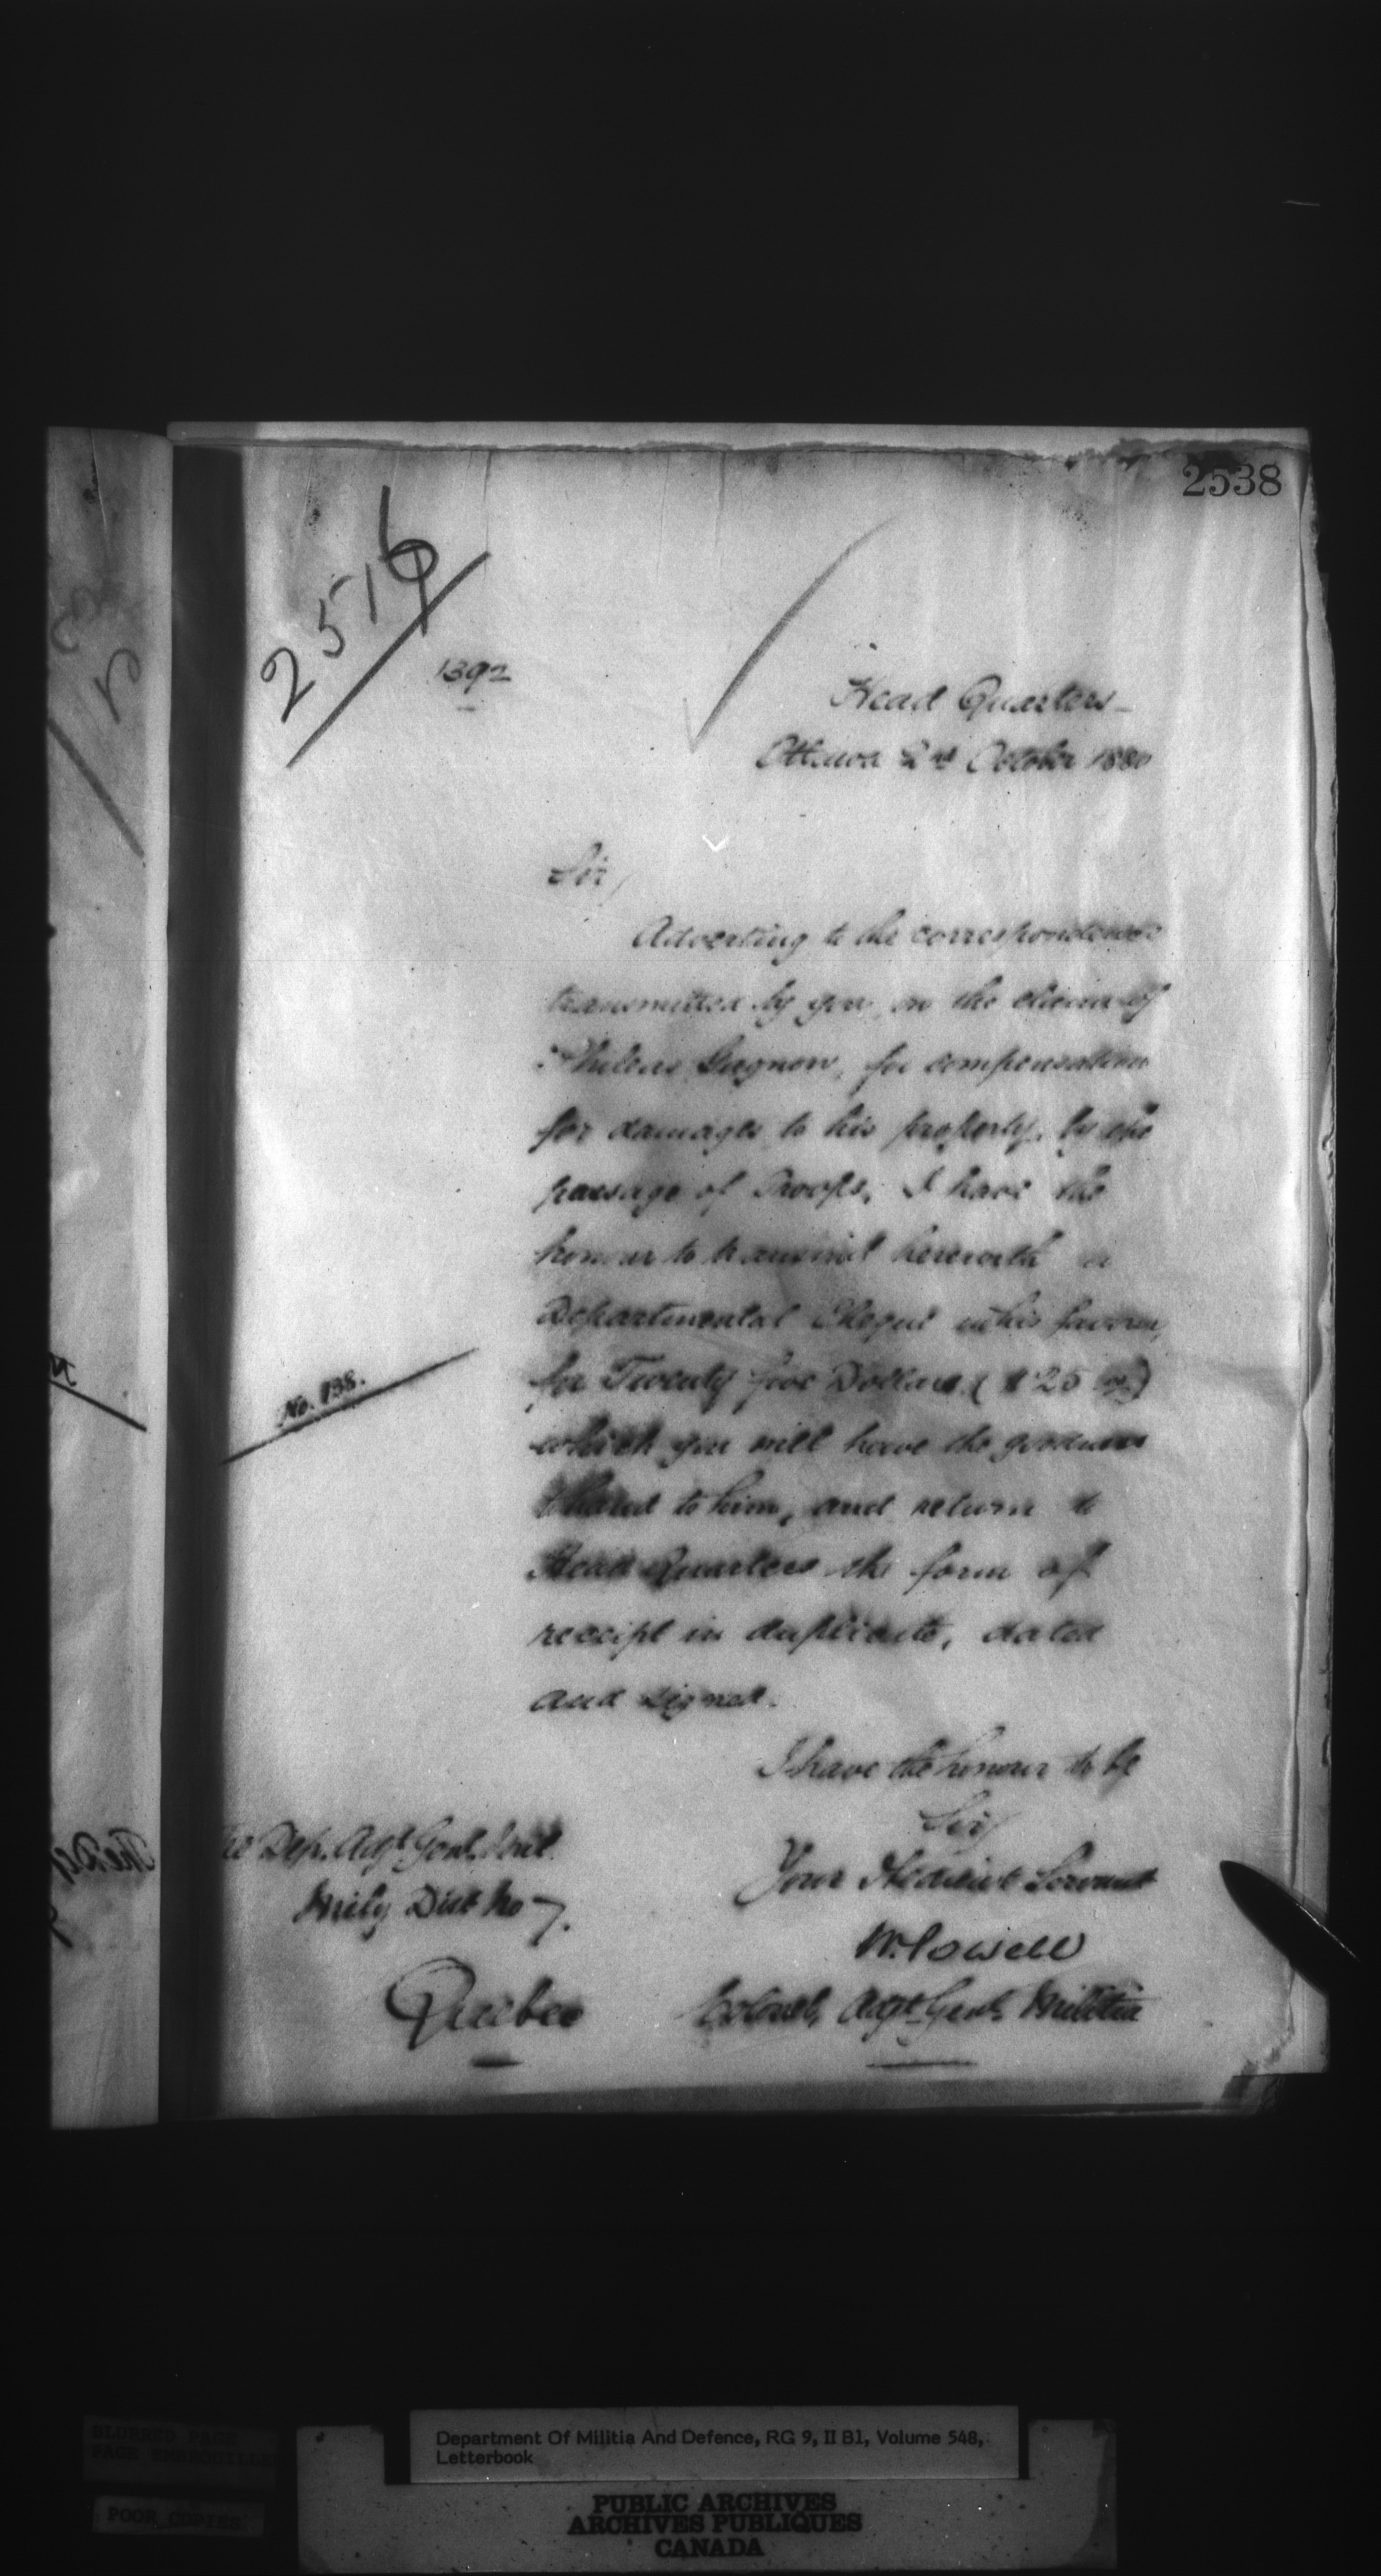 2538
2516
1392
Head Quarters
Ottawa 2nd October 1880
Sir,
Adverting to the correspondence
transmitted by you, on the claim of
Gagnon, for compensation
for damages to his property, by the
passage of Troops, I have the
honour to transmit herewith a
Departmental Cheque in his favour,
for Twenty five Dollars ($25
No. 138.
which you will have the goodness
to hand to him, and return to
Head Quarters the form of
receipt in duplicate, dated
and signed.
I have the honour to be
Sir,
Your Obedient Servant
W. Powell
Colonel, Adjt. Genl. Militia
The Dep. Adjt. Genl.
Mily Dist No 7.
Quebec
The De
BLURRED PAGE
PAGE EMBROUILLEE
POOR COPIES
Department Of Militia And Defence, RG 9, II B1, Volume 548,
Letterbook
PUBLIC ARCHIVES
ARCHIVES PUBLIQUES
CANADA